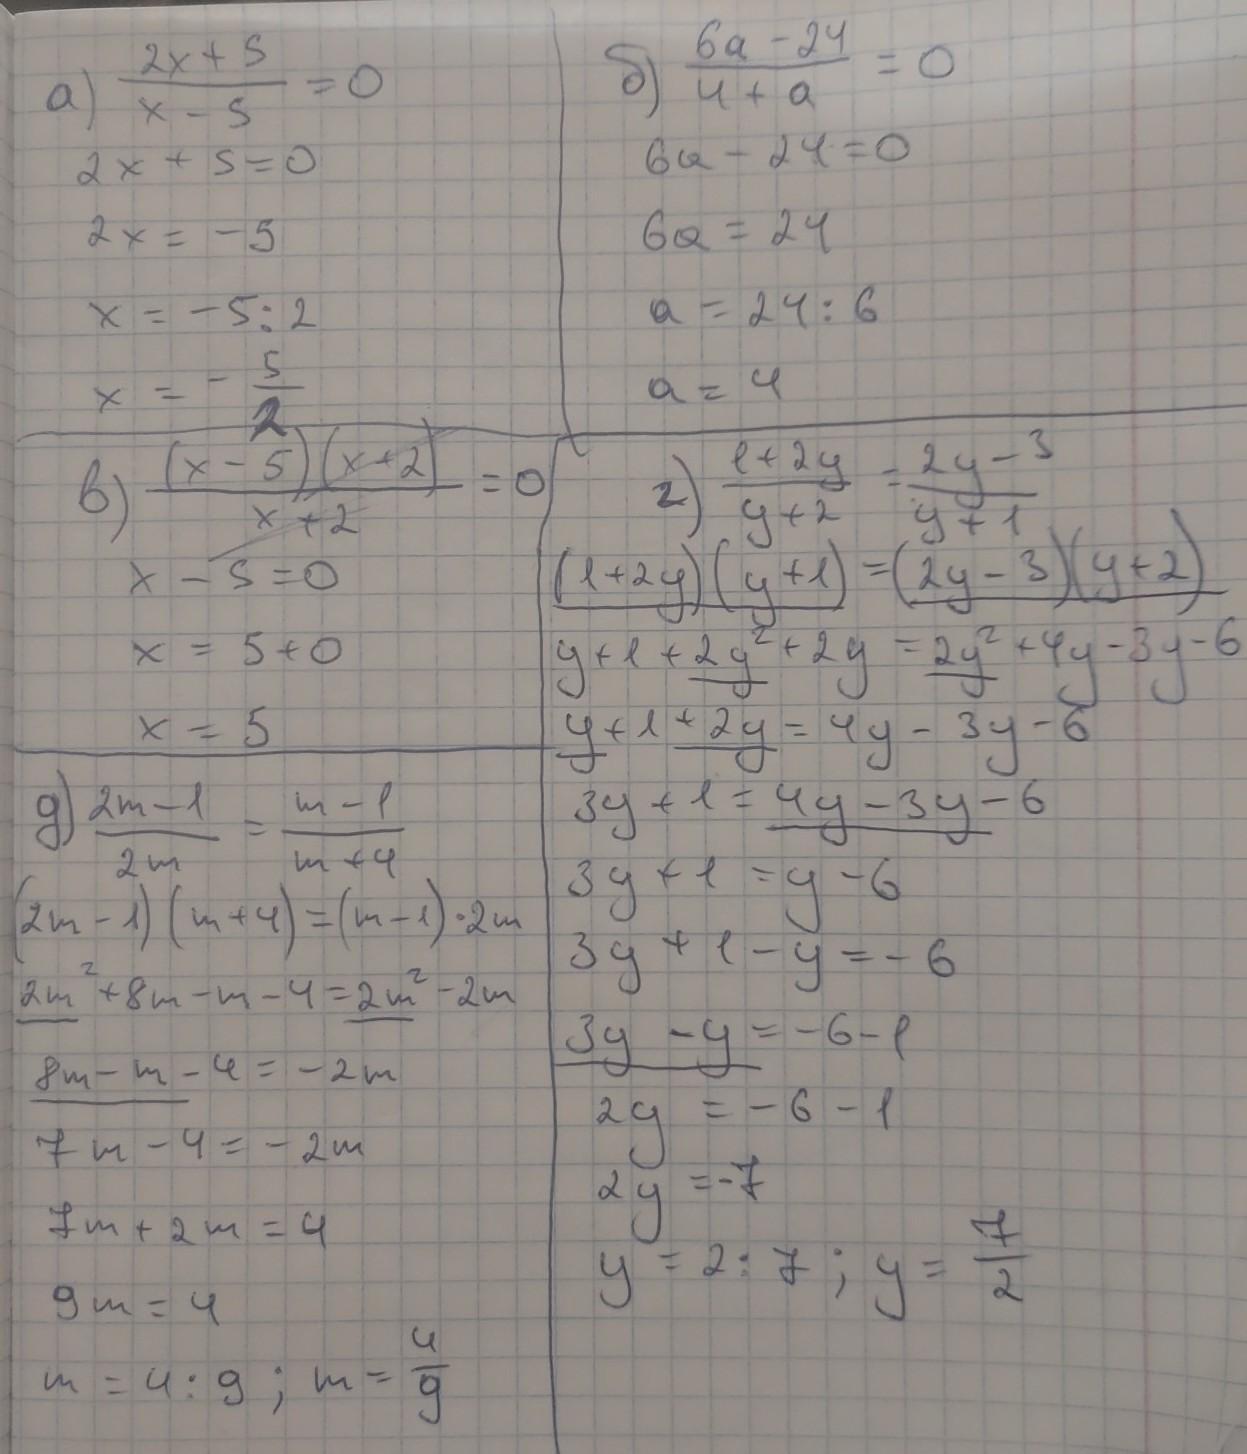 а) (2x + 5)/(x - 5) = 0
2x + 5 = 0
2x = -5
x = -5 : 2
x = - 5/2
б) (6a - 24)/(4 + a) = 0
6a - 24 = 0
6a = 24
a = 24 : 6
a = 4
в) (x - 5)(x + 2)/(x + 2) = 0
x - 5 = 0
x = 5 + 0
x = 5
г) (1 + 2y)/(y + 2) = (2y - 3)/(y + 1)
(1 + 2y)(y + 1) = (2y - 3)(y + 2)
y + 1 + 2y² + 2y = 2y² + 4y - 3y - 6
y + 1 + 2y = 4y - 3y - 6
3y + 1 = 4y - 3y - 6
3y + 1 = y - 6
3y + 1 - y = -6
3y - y = -6 - 1
2y = -6 - 1
2y = -7
y = 2 : 7 ; y = 7/2
д) (2m - 1)/(2m) = (m - 1)/(m + 4)
(2m - 1)(m + 4) = (m - 1) · 2m
2m² + 8m - m - 4 = 2m² - 2m
8m - m - 4 = -2m
7m - 4 = -2m
7m + 2m = 4
9m = 4
m = 4 : 9 ; m = 4/9